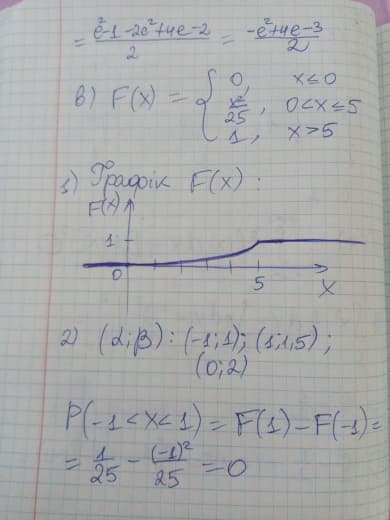 = e²-1-2e²+4e-2 / 2 = -e²+4e-3 / 2
в) F(x) = { 0, x≤0
x²/25, 0<x≤5
1, x>5
1) Графік F(x):
F(x)
1
0 5 x
2) (α;β): (-1;1); (1;1,5);
(0;2)
P(-1<x<1) = F(1) - F(-1) =
= 1/25 - (-1)²/25 = 0